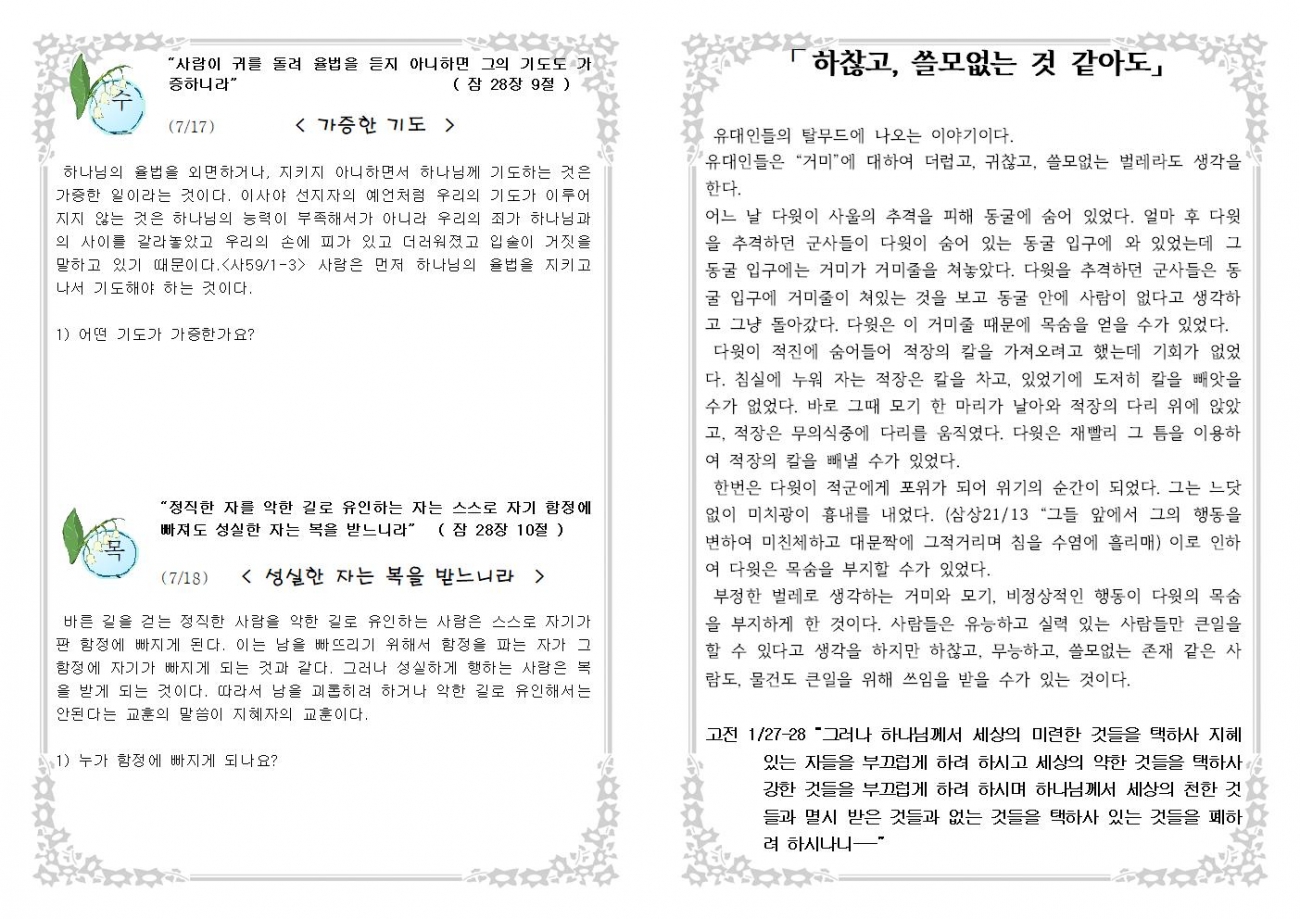 “사람이 귀를 돌려 율법을 듣지 아니하면 그의 기도도 가
증하니라” ( 잠 28장 9절 )
수
(7/17) < 가증한 기도 >
하나님의 율법을 외면하거나, 지키지 아니하면서 하나님께 기도하는 것은
가증한 일이라는 것이다. 이사야 선지자의 예언처럼 우리의 기도가 이루어
지지 않는 것은 하나님의 능력이 부족해서가 아니라 우리의 죄가 하나님과
의 사이를 갈라놓았고 우리의 손에 피가 있고 더러워졌고 입술이 거짓을
말하고 있기 때문이다.<사59/1-3> 사람은 먼저 하나님의 율법을 지키고
나서 기도해야 하는 것이다.
1) 어떤 기도가 가증한가요?
“정직한 자를 악한 길로 유인하는 자는 스스로 자기 함정에
빠져도 성실한 자는 복을 받느니라” ( 잠 28장 10절 )
목
(7/18) < 성실한 자는 복을 받느니라 >
바른 길을 걷는 정직한 사람을 악한 길로 유인하는 사람은 스스로 자기가
판 함정에 빠지게 된다. 이는 남을 빠뜨리기 위해서 함정을 파는 자가 그
함정에 자기가 빠지게 되는 것과 같다. 그러나 성실하게 행하는 사람은 복
을 받게 되는 것이다. 따라서 남을 괴롭히려 하거나 악한 길로 유인해서는
안된다는 교훈의 말씀이 지혜자의 교훈이다.
1) 누가 함정에 빠지게 되나요?
「 하찮고, 쓸모없는 것 같아도」
유대인들의 탈무드에 나오는 이야기이다.
유대인들은 “거미”에 대하여 더럽고, 귀찮고, 쓸모없는 벌레라도 생각을
한다.
어느 날 다윗이 사울의 추격을 피해 동굴에 숨어 있었다. 얼마 후 다윗
을 추격하던 군사들이 다윗이 숨어 있는 동굴 입구에 와 있었는데 그
동굴 입구에는 거미가 거미줄을 쳐놓았다. 다윗을 추격하던 군사들은 동
굴 입구에 거미줄이 쳐있는 것을 보고 동굴 안에 사람이 없다고 생각하
고 그냥 돌아갔다. 다윗은 이 거미줄 때문에 목숨을 얻을 수가 있었다.
다윗이 적진에 숨어들어 적장의 칼을 가져오려고 했는데 기회가 없었
다. 침실에 누워 자는 적장은 칼을 차고, 있었기에 도저히 칼을 빼앗을
수가 없었다. 바로 그때 모기 한 마리가 날아와 적장의 다리 위에 앉았
고, 적장은 무의식중에 다리를 움직였다. 다윗은 재빨리 그 틈을 이용하
여 적장의 칼을 빼낼 수가 있었다.
한번은 다윗이 적군에게 포위가 되어 위기의 순간이 되었다. 그는 느닷
없이 미치광이 흉내를 내었다. (삼상21/13 “그들 앞에서 그의 행동을
변하여 미친체하고 대문짝에 그적거리며 침을 수염에 흘리매) 이로 인하
여 다윗은 목숨을 부지할 수가 있었다.
부정한 벌레로 생각하는 거미와 모기, 비정상적인 행동이 다윗의 목숨
을 부지하게 한 것이다. 사람들은 유능하고 실력 있는 사람들만 큰일을
할 수 있다고 생각을 하지만 하찮고, 무능하고, 쓸모없는 존재 같은 사
람도, 물건도 큰일을 위해 쓰임을 받을 수가 있는 것이다.
고전 1/27-28 “그러나 하나님께서 세상의 미련한 것들을 택하사 지혜
있는 자들을 부끄럽게 하려 하시고 세상의 약한 것들을 택하사
강한 것들을 부끄럽게 하려 하시며 하나님께서 세상의 천한 것
들과 멸시 받은 것들과 없는 것들을 택하사 있는 것들을 폐하
려 하시나니──”